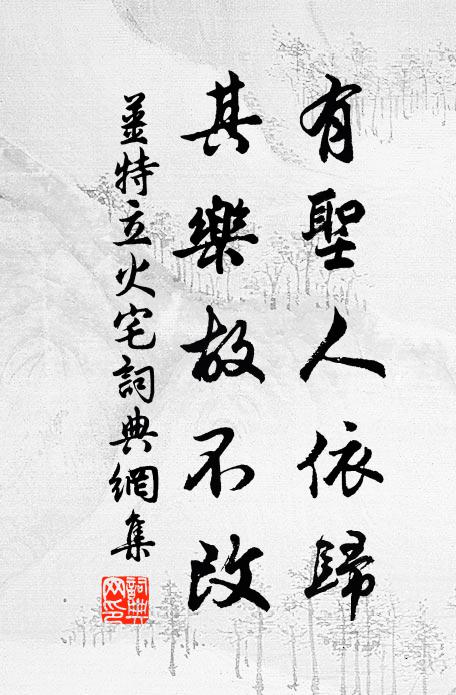 有聖人依歸
其樂故不改
姜特立火宅詞典網集
詞典
网印